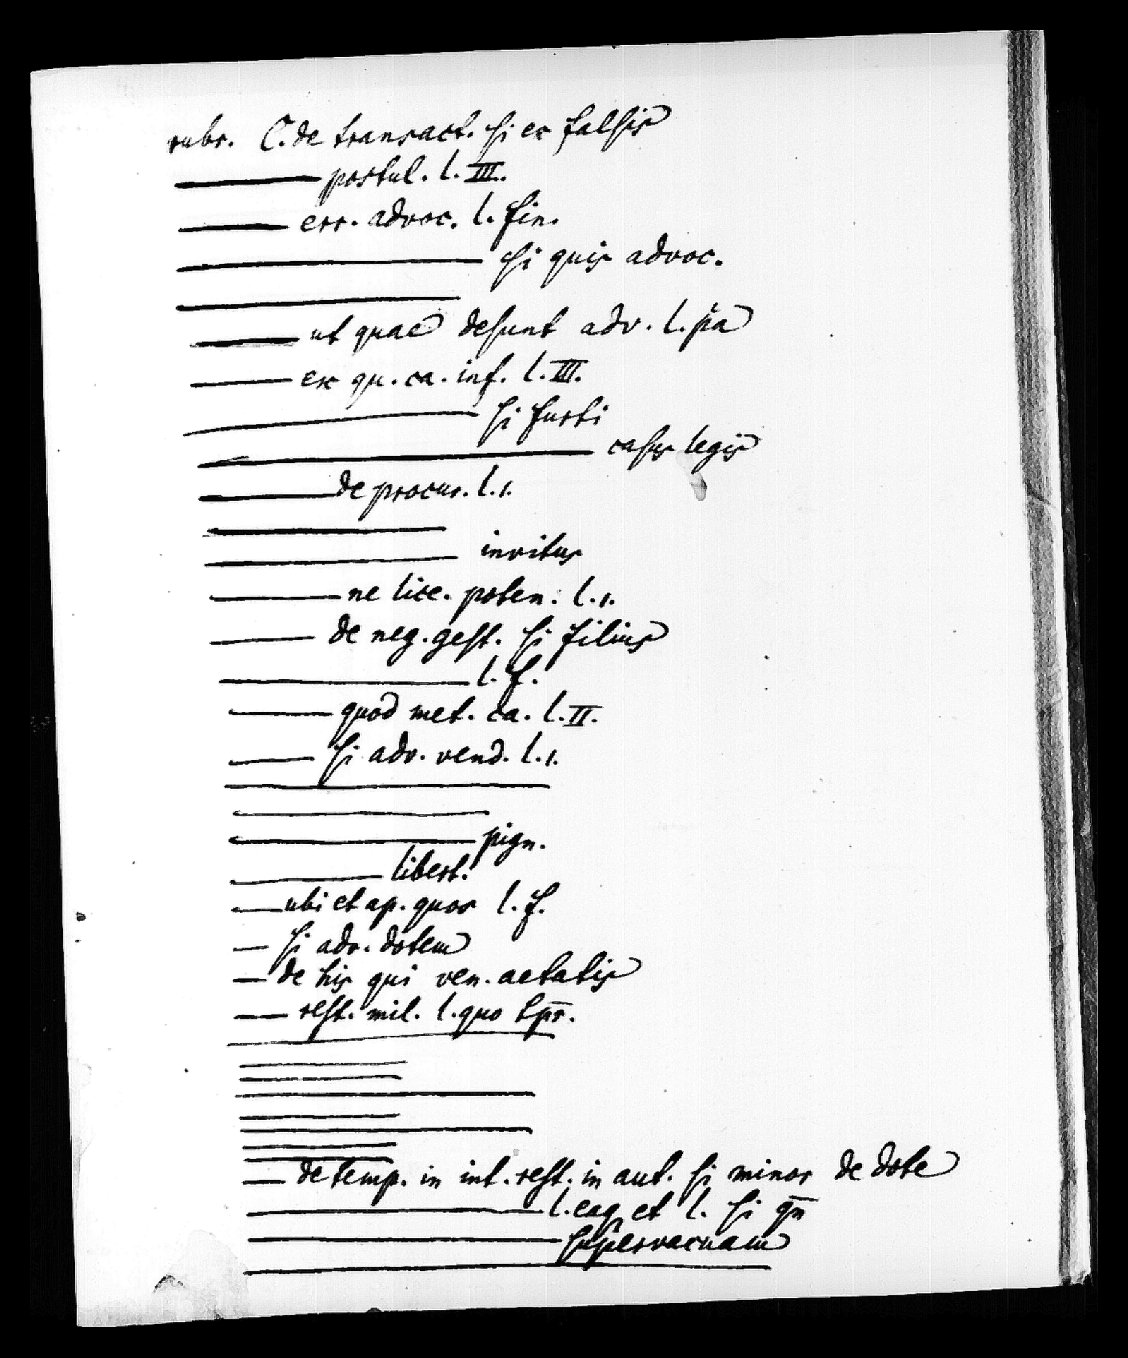 rubr. C. de transact. si ex falsis
postul. l. III.
err. advoc. l. fin.
si quis advoc.
ut quae desunt adv. l. p̄a
ex qu. ca. inf. l. III.
si furti
casus legis
de procur. l. 1.
invitus
ne lice. poten. l. 1.
de neg. gest. si filius
l. f.
quod met. ca. l. II.
si adv. vend. l. 1.
pign.
libert.
ubi et ap. quos l. f.
si adv. dotem
de his qui ven. aetatis
rest. mil. l. quo tp̄r.
de temp. in int. rest. in aut. si minor de dote
l. eaq. et l. si qn̄
supervacuam